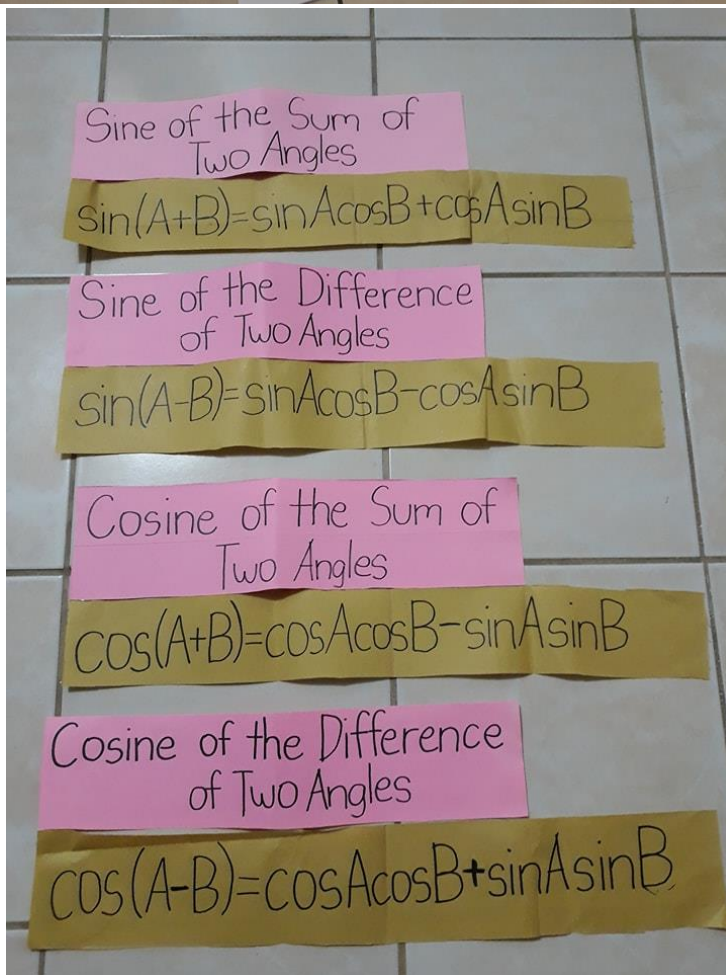 Sine of the Sum of
Two Angles
sin(A+B)=sinAcosB+cosAsinB
Sine of the Difference
of Two Angles
sin(A-B)=sinAcosB-cosAsinB
Cosine of the Sum of
Two Angles
cos(A+B)=cosAcosB-sinAsinB
Cosine of the Difference
of Two Angles
cos(A-B)=cosAcosB+sinAsinB